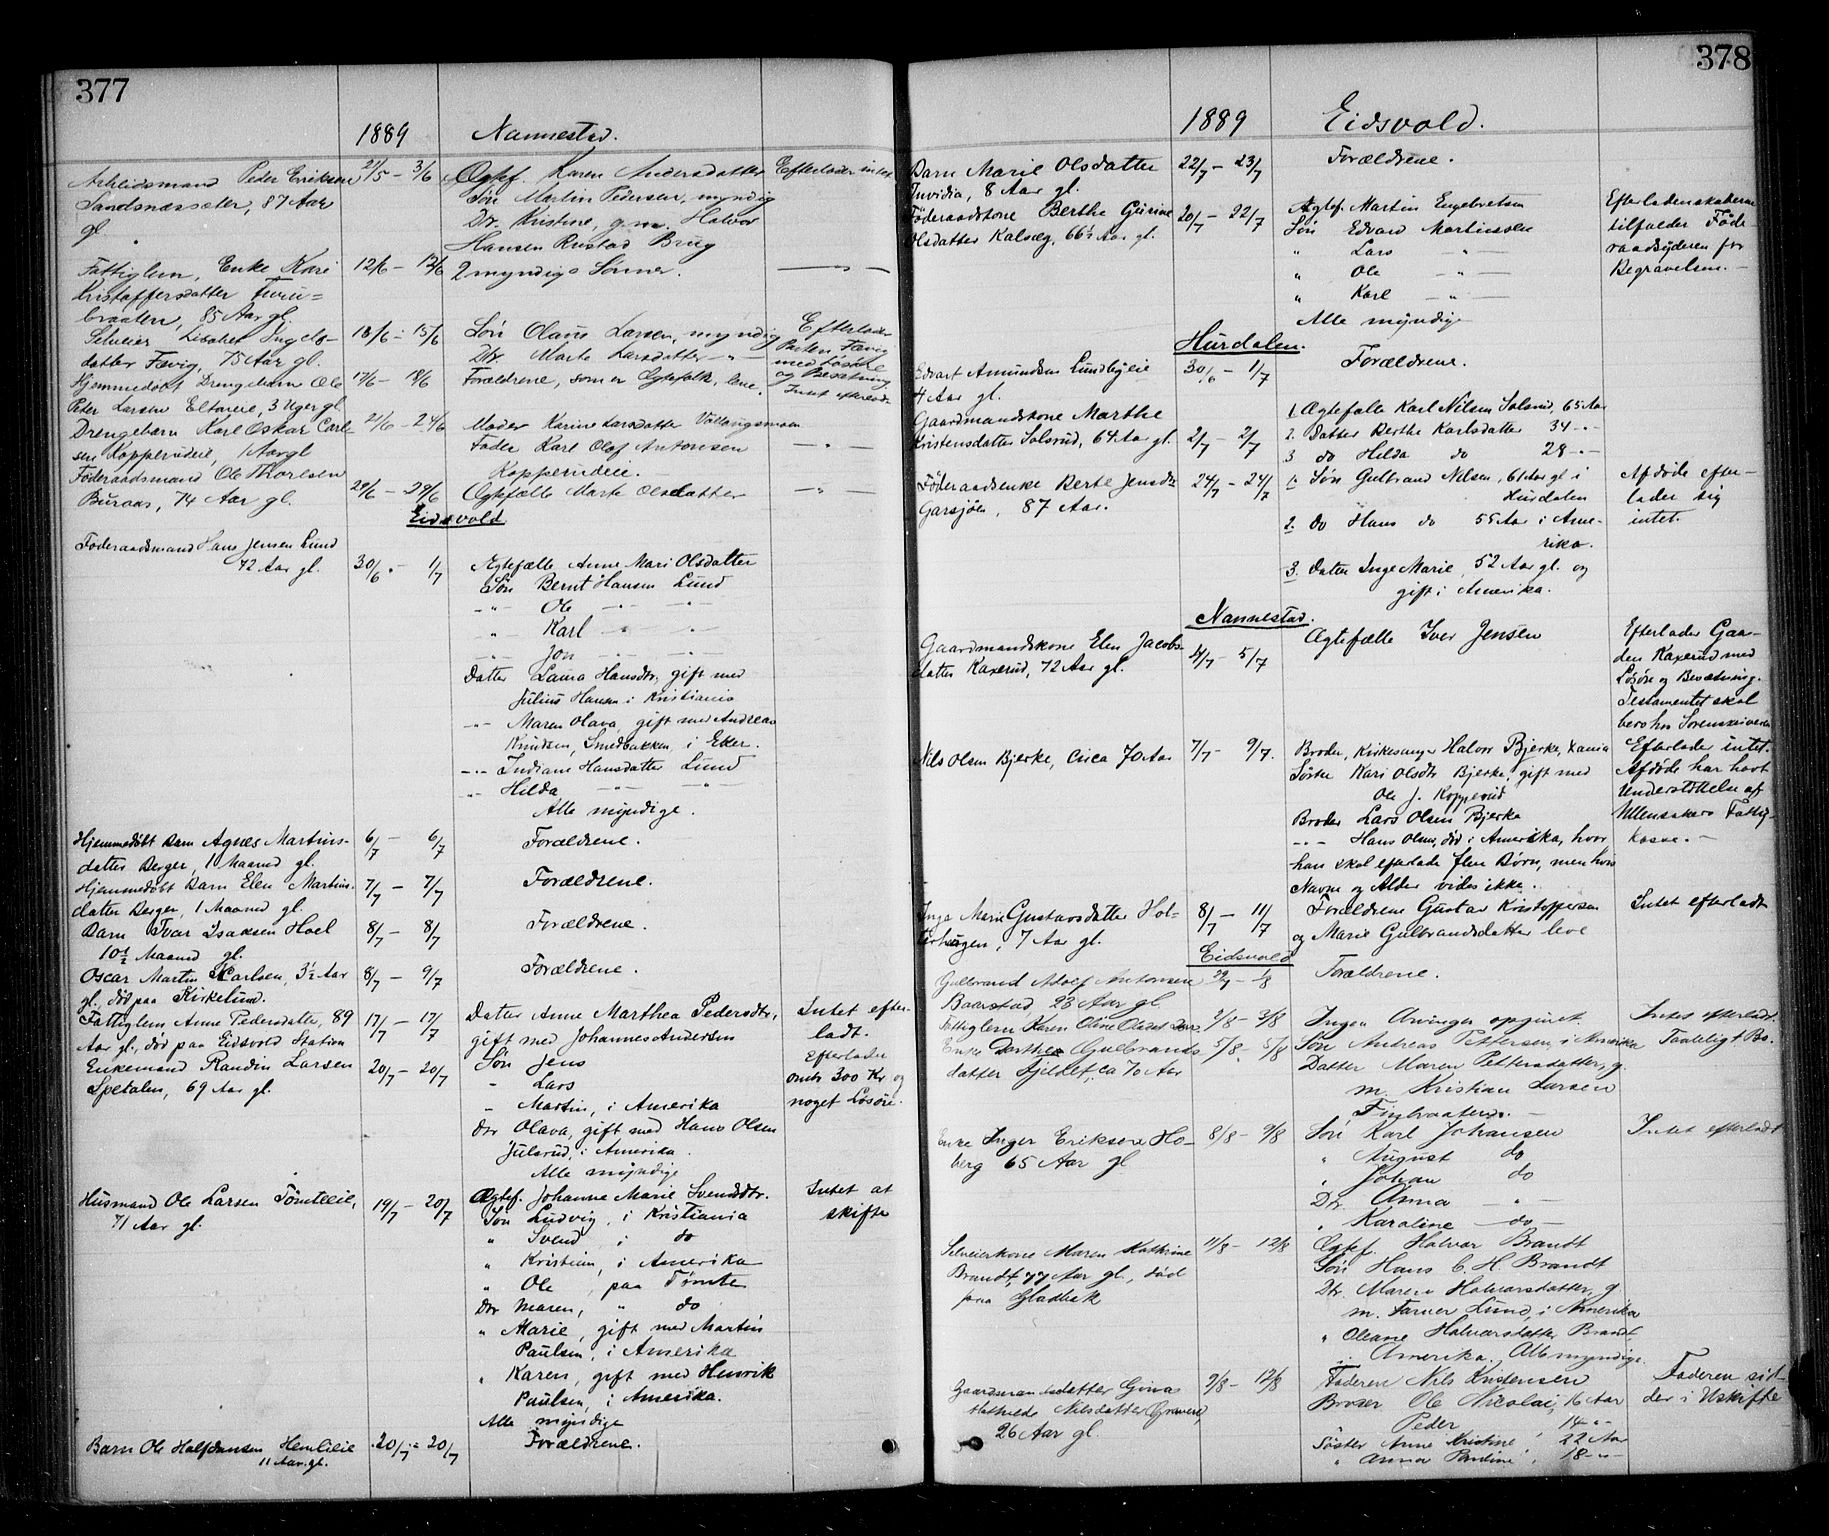 377
1889 Nannestad.
Arbeidsmand Peder Eriksen 21/5 – 3/6 Ægtef. Karen Andersdatter Efterlader intet
Sandsnæsseter, 87 Aar Søn Martin Pedersen, myndig
gl. Dr. Kristine, g. m. Halvor
Hansen Rustad Brug
Fattiglem, Enke Kari 12/6 – 12/6 2 myndige Sønner. — " —
Kristoffersdatter Furu=
braaten, 85 Aar gl.
Selveier Lisabet Ingels- 13/6 – 15/6 Søn Olaus Larsen, myndig Efterlader
datter Fævig, 75 Aar gl. Dtr. Marte Larsdatter – " – Parten Fævig
med Løsøre
og Besætning
Hjemmedøbt Drengebarn Ole 17/6 – 18/6 Forældrene, som er Ægtefolk, leve. Intet efterladt
Peter Larsen Eltoneie, 3 Uger gl.
Drengebarn Karl Oskar Carl- 21/6 – 24/6 Moder Karine Larsdatter Vollaugsmoen
sen Kopperudeie, 1 Aar gl Fader Karl Olof Antonsen — " —
Kopperudeie.
Føderaadsmand Ole Thorlsen
Buraas, 74 Aar gl. 29/6 – 29/6 Ægtefælle Marte Olsdatter — " —
Eidsvold
Føderaadsmand Hans Jensen Lund
72 Aar gl. 30/6 – 1/7 Ægtefælle Anne Mari Olsdatter
Søn Bernt Hansen Lund
– " – Ole – " – – " –
" Karl – " – – " –
– " – Jon – " – – " –
Datter Laura Hansdtr, gift med
Julius Hansen i Kristiania
– " – Maren Olava, gift med Andreas
Knudsen, Smedbakken, i Eker.
– " – Indiane Hansdatter Lund
– " – Hilda – " – – " –
Alle myndige.
Hjemmedøbt Barn Agnes Martins- 6/7 – 6/7 Forældrene.
datter Berger, 1 Maaned gl.
Hjemmedøbt Barn Elen Martins- 7/7 – 7/7 Forældrene.
datter Berger, 1 Maaned gl.
Barn Ivar Isaksen Hoel 8/7 – 8/7 Forældrene.
10½ Maaned gl.
Oscar Martin Karlsen, 3½ Aar 8/7 – 9/7 Forældrene.
gl., død paa Kirkelund.
Fattiglem Anne Pedersdatter, 89 17/7 – 17/7 Datter Anne Marthea Pedersdtr, Intet efter-
Aar gl., død paa Eidsvold Station gift med Johannes Andersen ladt.
Enkemand Randin Larsen 20/7 – 20/7 Søn Jens Efterlader
Spetalen, 69 Aar gl. – Lars omtr 300 Kr og
– Martin, i Amerika noget Løsøre.
Dtr Olava, gift med Hans Olsen
Julsrud, i Amerika.
Alle myndige
Husmand Ole Larsen Tømteeie, 19/7 – 20/7 Ægtef. Johanne Marie Svendsdtr. Intet at
71 Aar gl. Søn Ludvig, i Kristiania skifte
" Svend i do
" Kristian, i Amerika
" Ole, paa Tømte
Dtr Maren, " do
" Marie, gift med Martin
Paulsen, i Amerika
" Karen, gift med Henrik
Paulsen, i Amerika.
Alle myndige
Barn Ole Halfdansen Hemlieie 20/7 – 20/7 Forældrene.
11 Aar gl.
378
1889 Eidsvold.
Barn Marie Olsdatter 22/7 – 23/7 Forældrene.
Invidia, 8 Aar gl.
Føderaadskone Berthe Gurine 20/7 – 22/7 Ægtef. Martin Engebretsen Efterladenskaberne
Olsdatter Kalsæg, 66½ Aar gl. Søn Edvard Martinsen tilfalder Føde-
" Lars – " – raadsyderen for
" Ole – " – Begravelsen. –
" Karl – " –
Alle myndige
Hurdalen.
Edvart Amundsen Lundbyeie 30/6 – 1/7 Forældrene.
4 Aar gl.
Gaardmandskone Marthe 1. Ægtefælle Karl Nilsen Solsrud, 65 Aar
Kristensdatter Solsrud, 64 Aar gl. 2/7 – 2/7 2. Datter Berthe Karlsdatter 34 – " –
3 do Hilda do 28 – " –
Føderaadsenke Berte Jensdtr 24/7 – 24/7 1. Søn Gulbrand Nilsen, 61 Aar gl i Afdøde efter-
Garsjøen, 87 Aar. Hurdalen lader sig
2. Do Hans do 55 Aar i Ame- intet.
rika.
3. Datter Inge Marie, 52 Aar gl. og
gift i Amerika.
Nannestad.
Gaardmandskone Elen Jacobs- 4/7 – 5/7 Ægtefælle Iver Jensen Efterlader Gaar-
datter Kaxerud, 72 Aar gl. den Kaxerud med
Løsøre og Besætning.
Testamentet skal
bero hos Sorenskriveren
Nils Olsen Bjerke, Circa 70 Aar 7/7 – 9/7. Broder, Kirkesanger Halvor Bjerke, Xania Efterlader intet.
Søster Kari Olsdtr Bjerke, gift med Afdøde har havt
Ole J. Kopperud Understøttelse af
Broder Lars Olsen Bjerke Ullensakers Fattig-
– " – Hans Olsen, død i Amerika, hvor kasse. –
han skal efterlade flere Børn, men hvis
Navne og Alder vides ikke.
Inga Marie Gustavsdatter Hol- 8/7 – 11/7 Forældrene Gustav Kristoffersen Intet efterladt
terhagen, 7 Aar gl. og Marie Gulbrandsdatter leve
Eidsvold
Gulbrand Adolf Antonsen 29/7 – 1/8 Forældrene.
Baarstad 23 Aar gl.
Fattiglem Karen Oline Olsdtr 2/8 – 3/8 Ingen Arvinger opgivet. Intet efterladt.
Enke Dorthea Gulbrands 5/8 – 5/8 Søn Andreas Pettersen, i Amerika Taaleligt Bo.
datter Fjeldet, ca 70 Aar Datter Maren Pettersdatter, g.
m. Kristian Larsen
Finbraaten. –
Enke Inger Eriksen Ho- 8/8 – 9/8 Søn Karl Johansen Intet efterladt
berg 65 Aar gl " August do
" Johan do
Dtr. Anna – " –
" Karoline – do –
Selveierkone Maren Kathrine 11/8 – 12/8 Ægtef. Halvor Brandt
Brandt, 77 Aar gl., død Søn Hans C. H. Brandt
paa Gladbak Dtr. Maren Halvorsdatter, g
m. Farver Lund, i Amerika
" Oleane Halvorsdatter Brandt,
i Amerika. Alle myndige.
Gaardmandsdatter Gina 9/8 – 12/8 Faderen Nils Kristensen Faderen sid-
Mathilde Nilsdatter 26 Aar gl. Broder Ole Nicolai, 16 Aar der i Uskifte
Peder 14 – " –
Søster Anne Kristine, 22 Aar
" Anna Pauline, 18 – " –